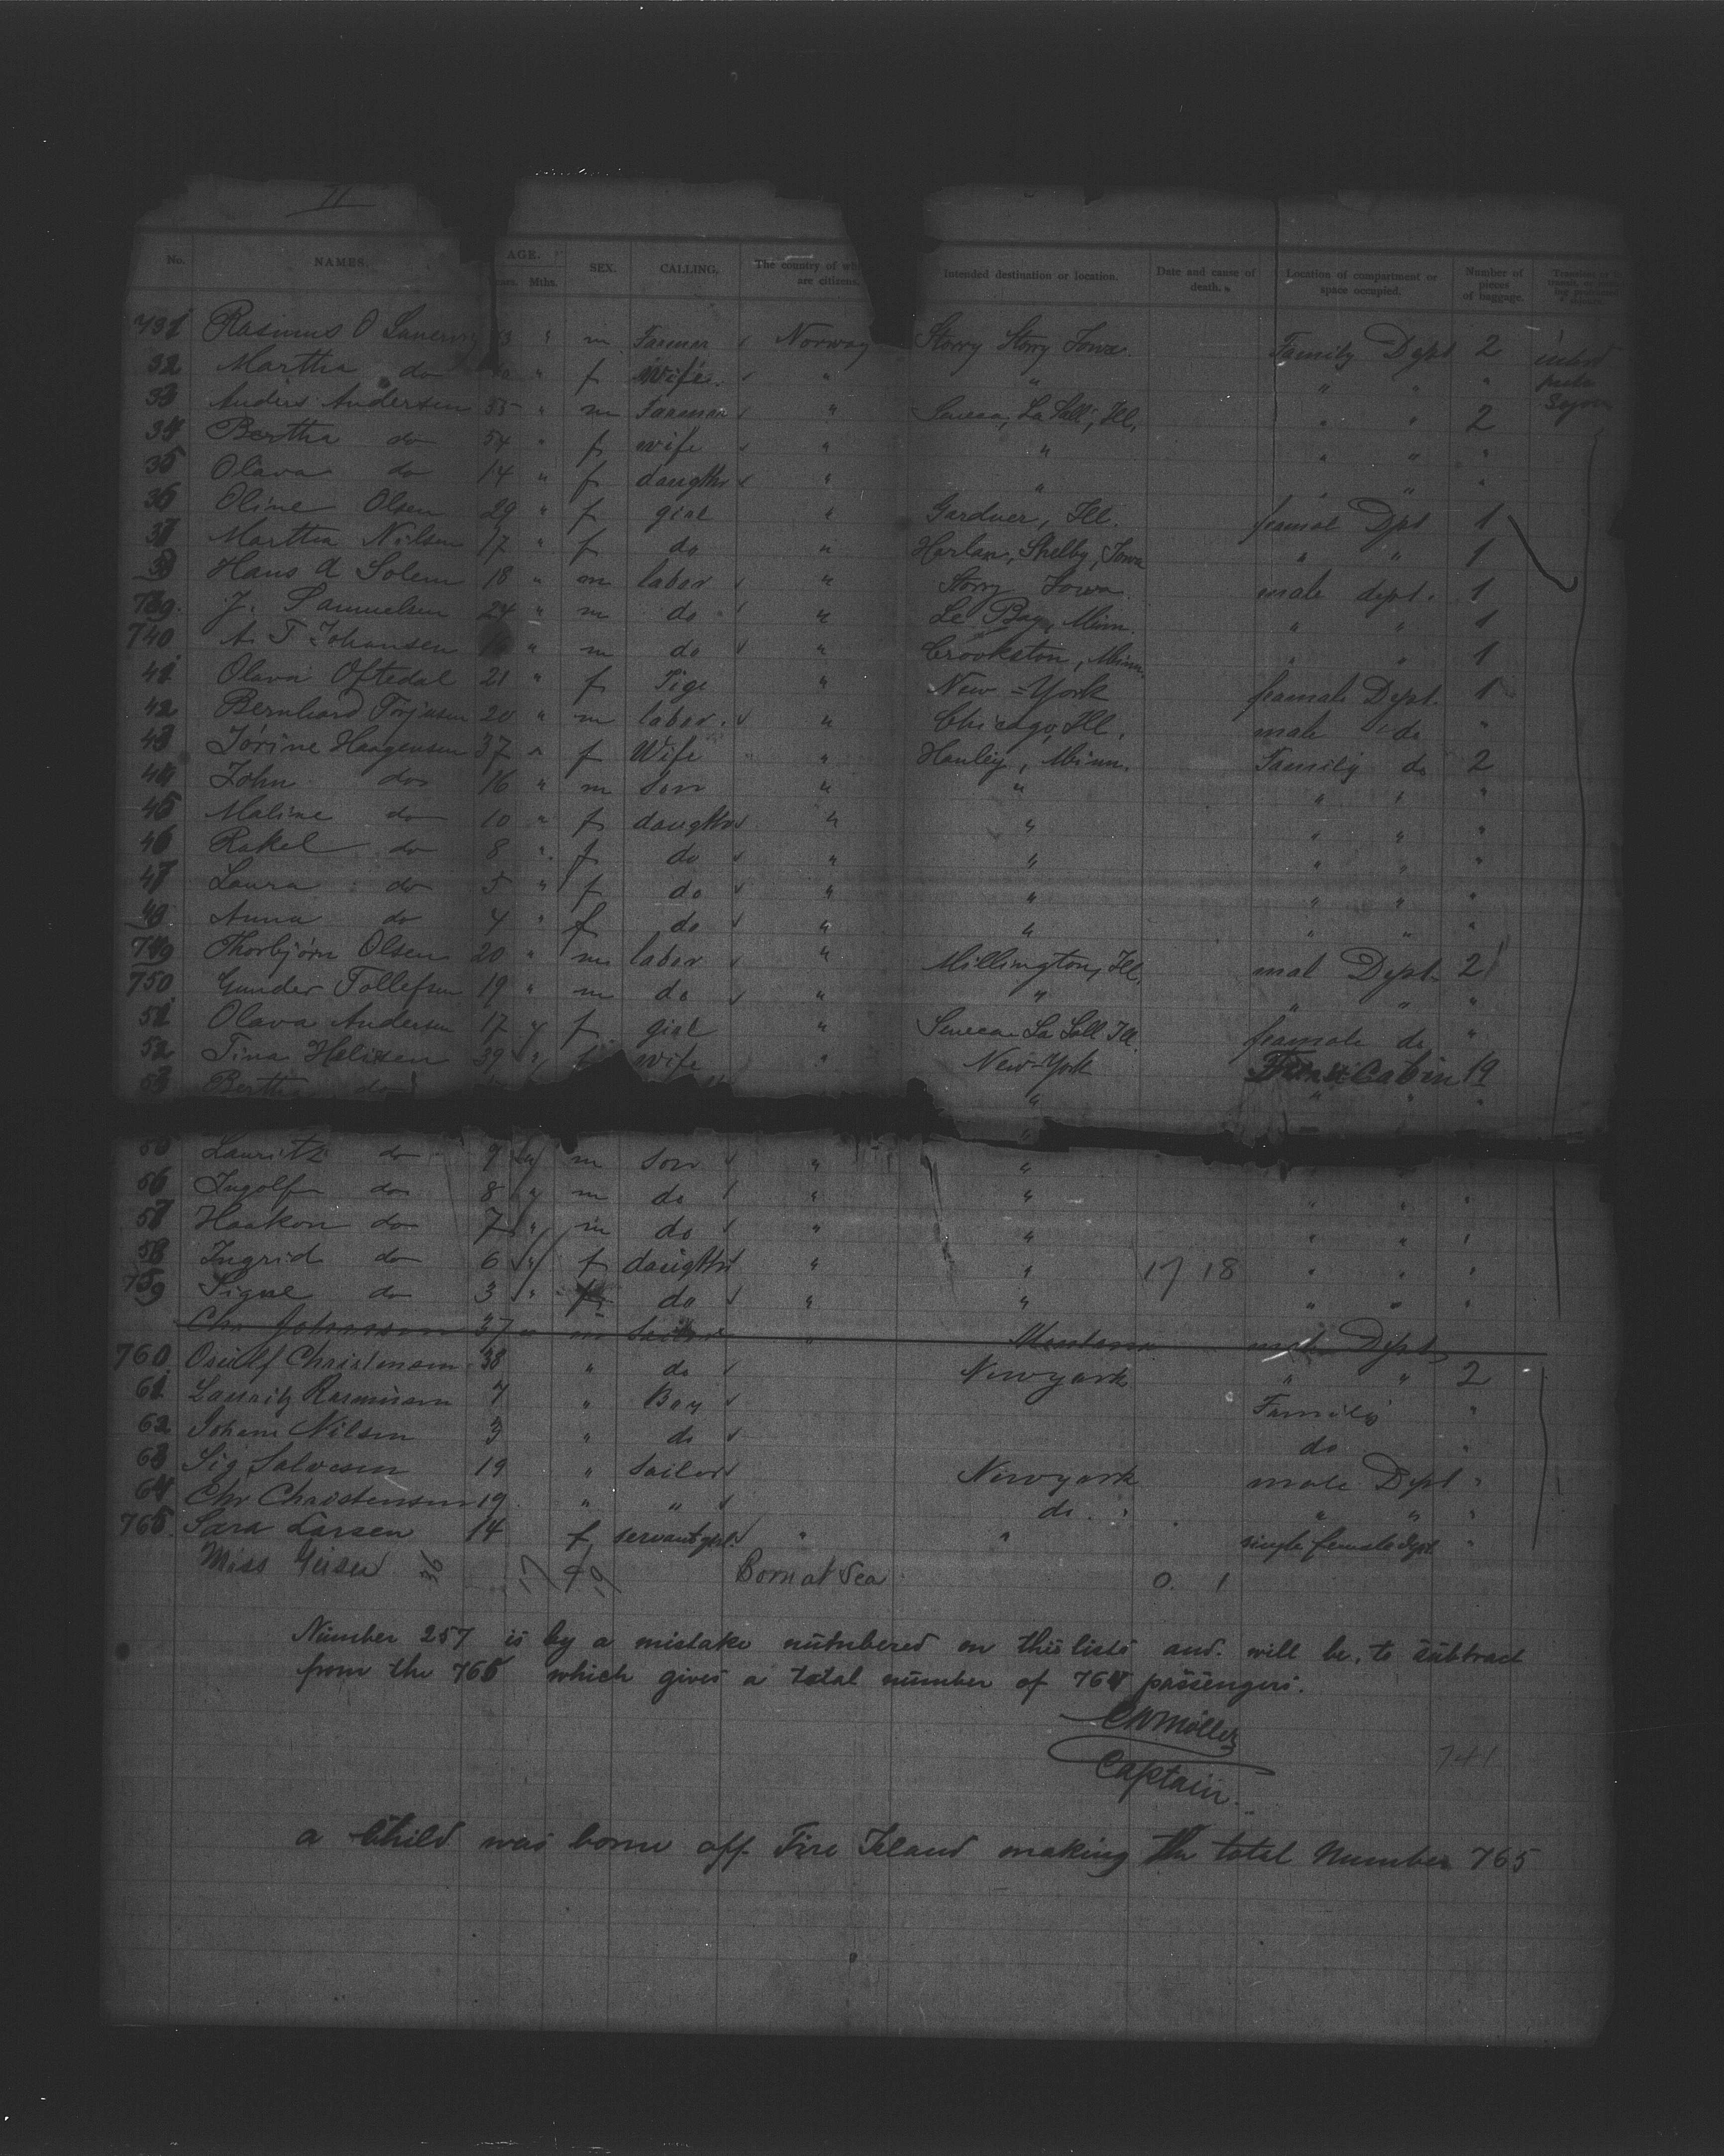 II
No. NAMES. AGE. Years. Mths. SEX. CALLING. The country of wh are citizens. Intended destination or location. Date and cause of death. Location of compartment or space occupied. Number of pieces of baggage.
731 Rasmus O 3 " m Farmer Norway Storry Storry Iowa. Family Dept 2
32 Martha do " f Wife. " " " " "
33 Anders Andersen 55 " m Farmer " Seneca, La Sall, Ill. " " 2
34 Bertha do 54 " f wife " " " " "
35 Olava do 14 " f daugthr " " " " "
36 Oline Olsen 29 " f girl " Gardner, Ill. femal Dpt 1
37 Martha Nilsen 17 " f do " Harlan, Shelby, Iowa " " 1
38 Hans A Solem 18 " m labor " Storry Iowa male dept. 1
739. J. Samuelsen 24 " m do " Le Bay, Minn. " " 1
740 A. T Johansen " m do " Crookston, Minn. " " 1
41 Olava Oftedal 21 " f Pige " New=York female Dept. 1
42 Bernhard Torjusen 20 " m labor. " Chicago, Ill. male do "
43 Jorine Haagensen 37 " f Wife " Hanley, Minn. Family do 2
44 John do 16 " m son " " " " "
45 Maline do 10 " f daugthr " " " " "
46 Rakel do 8 " f do " " " " "
47 Laura do 5 " f do " " " " "
48 Anna do 4 " f do " " " " "
749 Thorbjørn Olsen 20 " m labor " Millington, Ill. mal Dept. 2
750 Gunder Tollefsen 19 " m do " " " " "
51 Olava Andersen 17 " f girl " Seneca La Sall Ill. female do "
52 Tina 39 " f wife " New-York Cabin 19
53 Bertha do " " " "
Lauritz do 9 " m son " "
56 Ingolf do 8 " m do " " " " "
57 Haakon do 7 " m do " " " " "
58 Ingrid do 6 " f daugthr " " 17 18 " " "
759 Signe do 3 " f do " " " " "
Chr Johannsen 37 " m Sailor " Montana male Dept.
760. Osulf Christensen 38 " do Newyork " " 2
61 Lauritz Rasmussen 7 " Boy Family "
62 Johan Nilsen 3 " do do "
63 Sig Salvesen 19 " Sailor Newyork male Dept "
64 Chr Christensen 19 " " do. " " "
765. Sara Larsen 14 f servantgirl " " single female dept. "
Miss Geiser 36 17 f 19 Born at Sea 0. 1
Number 257 is by a mistake numbered on this liste and will be to subtract
from the 765 which gives a total number of 764 passengers.
CMMöller
Captain.
741
a Child was borne off Fire Island making the total Number 765